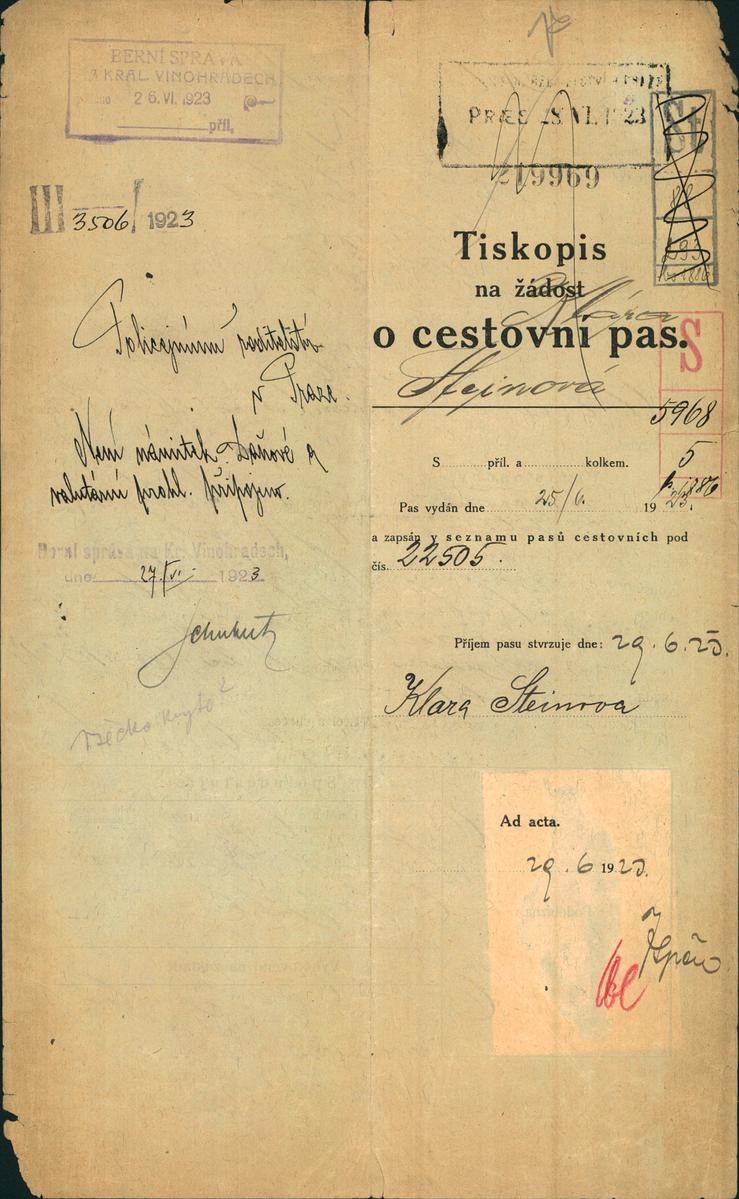 BERNÍ SPRÁVA
NA KRÁL. VINOHRADECH
26.VI.1923
příl.
III 3506/1923
Policejnímu ředitelství
v Praze.
Není námitek. Daňové a
valutární prohl. připojeno.
Berní správa na Kr. Vinohradech,
dne 27/VI. 1923
Schubert
PRÆS 28 VI. 1923
219969
St
Tiskopis
na žádost
o cestovní pas.
Klára
Steinová
S
5968
5
S příl. a kolkem.
Pas vydán dne 25/6. 1923.
a zapsán v seznamu pasů cestovních pod
čís. 22505.
Příjem pasu stvrzuje dne: 29.6.23.
Klara Steinova
Ad acta.
29.6 1923.